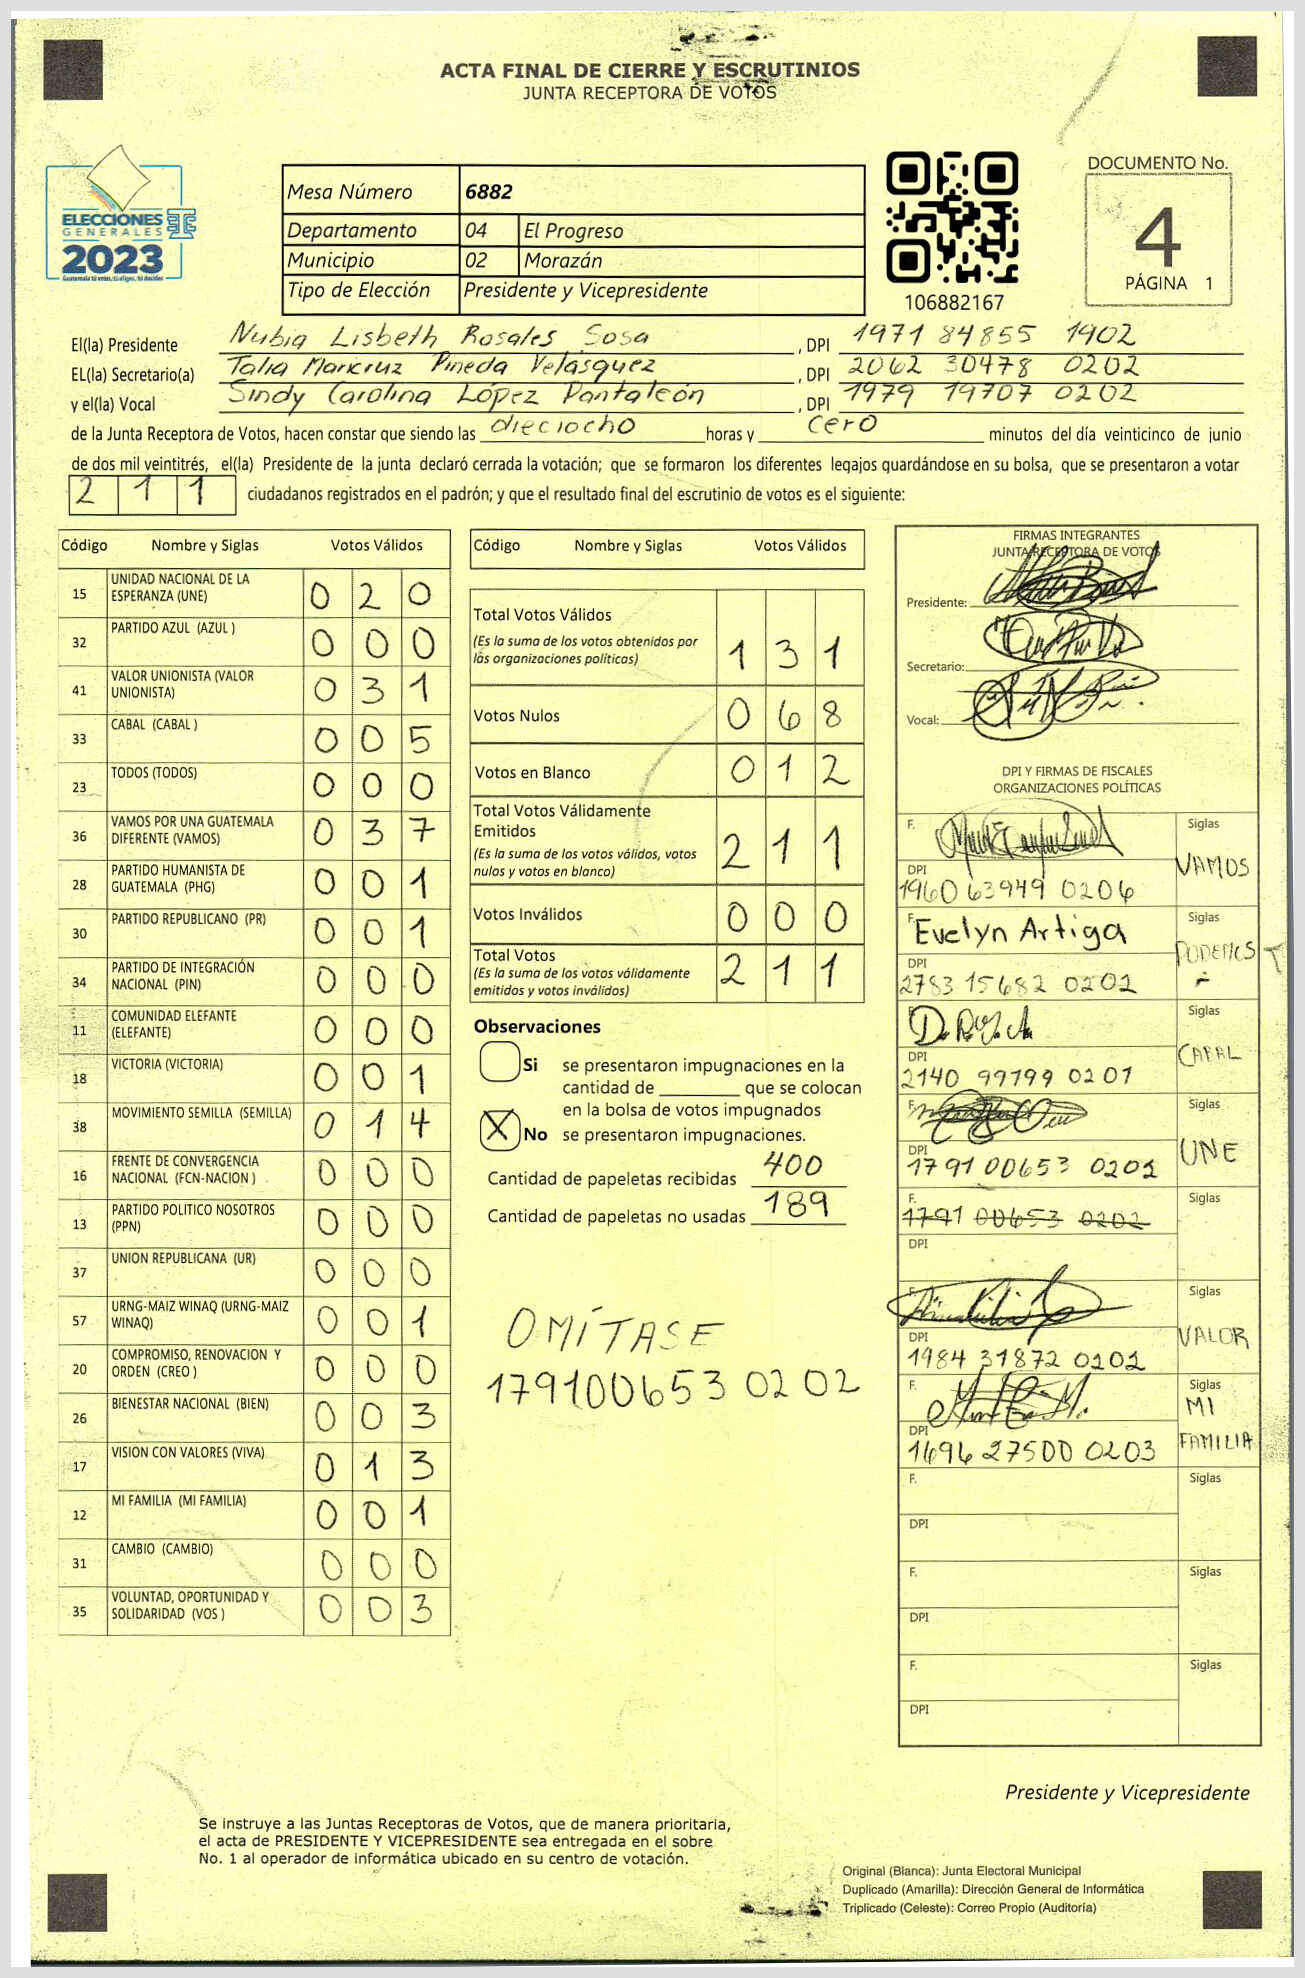 ACTA FINAL DE CIERRE Y ESCRUTINIOS
JUNTA RECEPTORA DE VOTOS
ELECCIONES
GENERALES
2023
Guatemala tú votas, tú eliges, tú decides
Mesa Número 6882
Departamento 04 El Progreso
Municipio 02 Morazán
Tipo de Elección Presidente y Vicepresidente
106882167
DOCUMENTO No.
4
PÁGINA 1
El(la) Presidente Nubia Lisbeth Rosales Sosa, DPI 1971 84855 1902
EL(la) Secretario(a) Talia Maricruz Pineda Velásquez, DPI 2062 30478 0202
y el(la) Vocal Sindy Carolina López Pantaleón, DPI 1979 19707 0202
de la Junta Receptora de Votos, hacen constar que siendo las dieciocho horas y cero minutos del día veinticinco de junio
de dos mil veintitrés, el(la) Presidente de la junta declaró cerrada la votación; que se formaron los diferentes legajos guardándose en su bolsa, que se presentaron a votar
2 1 1 ciudadanos registrados en el padrón; y que el resultado final del escrutinio de votos es el siguiente:
Código Nombre y Siglas Votos Válidos
15 UNIDAD NACIONAL DE LA ESPERANZA (UNE) 0 2 0
32 PARTIDO AZUL (AZUL ) 0 0 0
41 VALOR UNIONISTA (VALOR UNIONISTA) 0 3 1
33 CABAL (CABAL ) 0 0 5
23 TODOS (TODOS) 0 0 0
36 VAMOS POR UNA GUATEMALA DIFERENTE (VAMOS) 0 3 7
28 PARTIDO HUMANISTA DE GUATEMALA (PHG) 0 0 1
30 PARTIDO REPUBLICANO (PR) 0 0 1
34 PARTIDO DE INTEGRACIÓN NACIONAL (PIN) 0 0 0
11 COMUNIDAD ELEFANTE (ELEFANTE) 0 0 0
18 VICTORIA (VICTORIA) 0 0 1
38 MOVIMIENTO SEMILLA (SEMILLA) 0 1 4
16 FRENTE DE CONVERGENCIA NACIONAL (FCN-NACION ) 0 0 0
13 PARTIDO POLITICO NOSOTROS (PPN) 0 0 0
37 UNION REPUBLICANA (UR) 0 0 0
57 URNG-MAIZ WINAQ (URNG-MAIZ WINAQ) 0 0 1
20 COMPROMISO, RENOVACION Y ORDEN (CREO ) 0 0 0
26 BIENESTAR NACIONAL (BIEN) 0 0 3
17 VISION CON VALORES (VIVA) 0 1 3
12 MI FAMILIA (MI FAMILIA) 0 0 1
31 CAMBIO (CAMBIO) 0 0 0
35 VOLUNTAD, OPORTUNIDAD Y SOLIDARIDAD (VOS ) 0 0 3
Código Nombre y Siglas Votos Válidos
Total Votos Válidos
(Es la suma de los votos obtenidos por
lás organizaciones políticas) 1 3 1
Votos Nulos 0 6 8
Votos en Blanco 0 1 2
Total Votos Válidamente
Emitidos
(Es la suma de los votos válidos, votos
nulos y votos en blanco) 2 1 1
Votos Inválidos 0 0 0
Total Votos
(Es la suma de los votos válidamente
emitidos y votos inválidos) 2 1 1
Observaciones
Si se presentaron impugnaciones en la
cantidad de ________ que se colocan
en la bolsa de votos impugnados
X No se presentaron impugnaciones.
Cantidad de papeletas recibidas 400
Cantidad de papeletas no usadas 189
OMÍTASE
179100653 0202
FIRMAS INTEGRANTES
JUNTA RECEPTORA DE VOTOS
Presidente:
Secretario:
Vocal:
DPI Y FIRMAS DE FISCALES
ORGANIZACIONES POLÍTICAS
F. Siglas
VAMOS
DPI
1960 63949 0206
F. Evelyn Artiga Siglas
PODEMOS
DPI
2783 15682 0202
F. Siglas
CABAL
DPI
2140 99799 0201
F. Siglas
UNE
DPI
1791 00653 0202
F. Siglas
1791 00653 0202
DPI
F. Siglas
VALOR
DPI
1984 31872 0202
F. Siglas
MI
FAMILIA
DPI
1696 27500 0203
F. Siglas
DPI
F. Siglas
DPI
F. Siglas
DPI
Presidente y Vicepresidente
Se instruye a las Juntas Receptoras de Votos, que de manera prioritaria,
el acta de PRESIDENTE Y VICEPRESIDENTE sea entregada en el sobre
No. 1 al operador de informática ubicado en su centro de votación.
Original (Blanca): Junta Electoral Municipal
Duplicado (Amarilla): Dirección General de Informática
Triplicado (Celeste): Correo Propio (Auditoría)